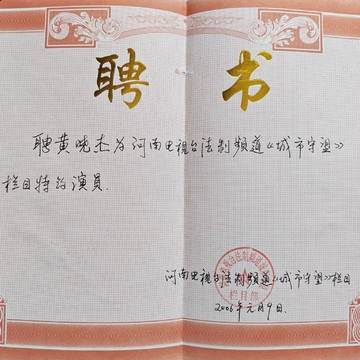 聘书
聘黄晓杰为河南电视台法制频道《城市守望》
栏目特约演员.
河南电视台法制频道《城市守望》栏目
2006年元月9日.
栏目部